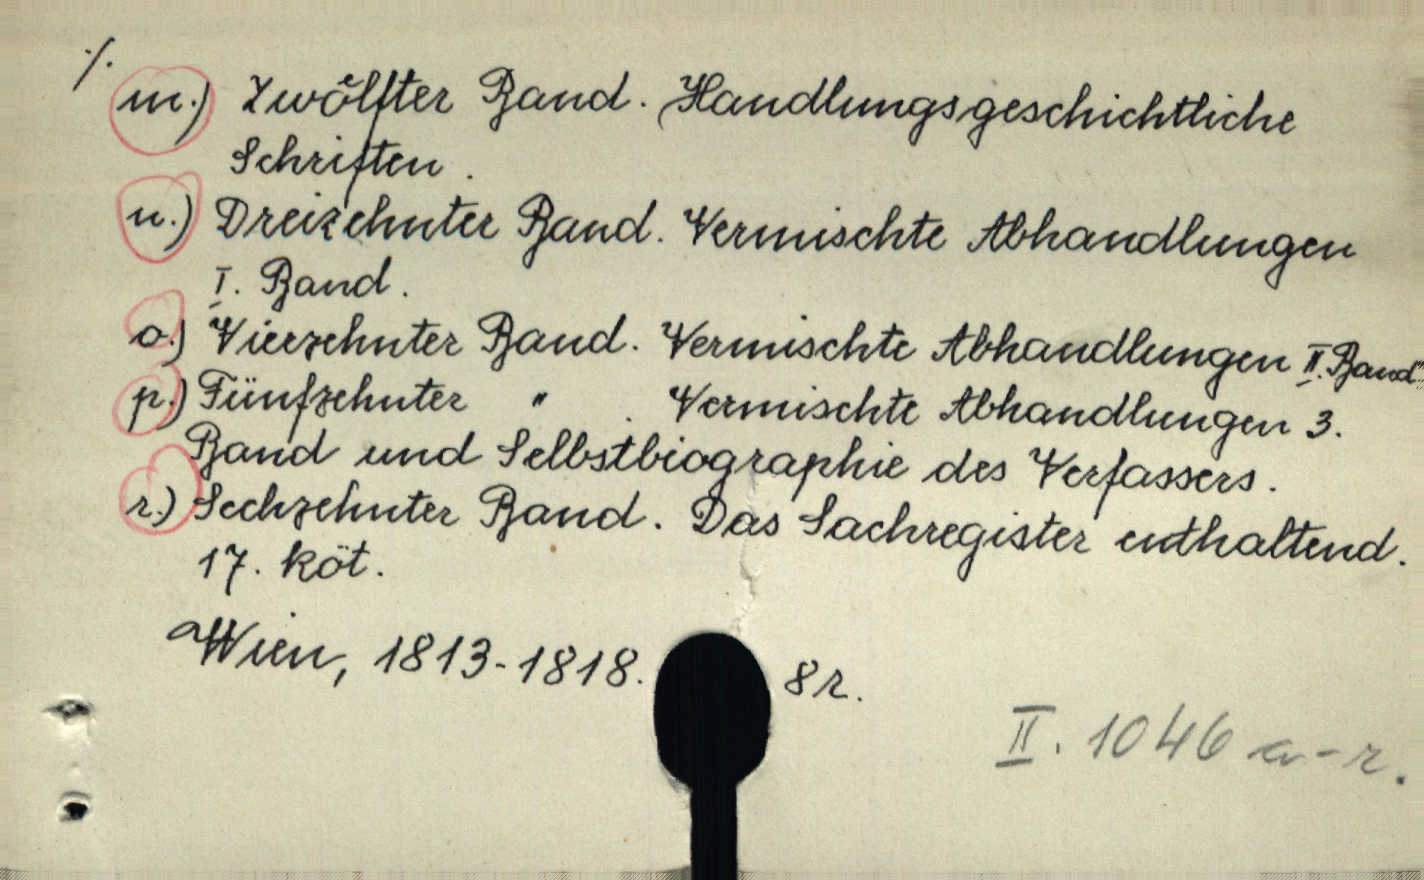 ./.
m.) Zwölfter Band. Handlungsgeschichtliche
Schriften.
n.) Dreizehnter Band. Vermischte Abhandlungen
I. Band.
o.) Vierzehnter Band. Vermischte Abhandlungen II. Band.
p.) Fünfzehnter " . Vermischte Abhandlungen 3.
Band und Selbstbiographie des Verfassers.
r.) Sechzehnter Band. Das Sachregister enthaltend.
17. köt.
Wien, 1813-1818. 8r.
II. 1046 a-r.